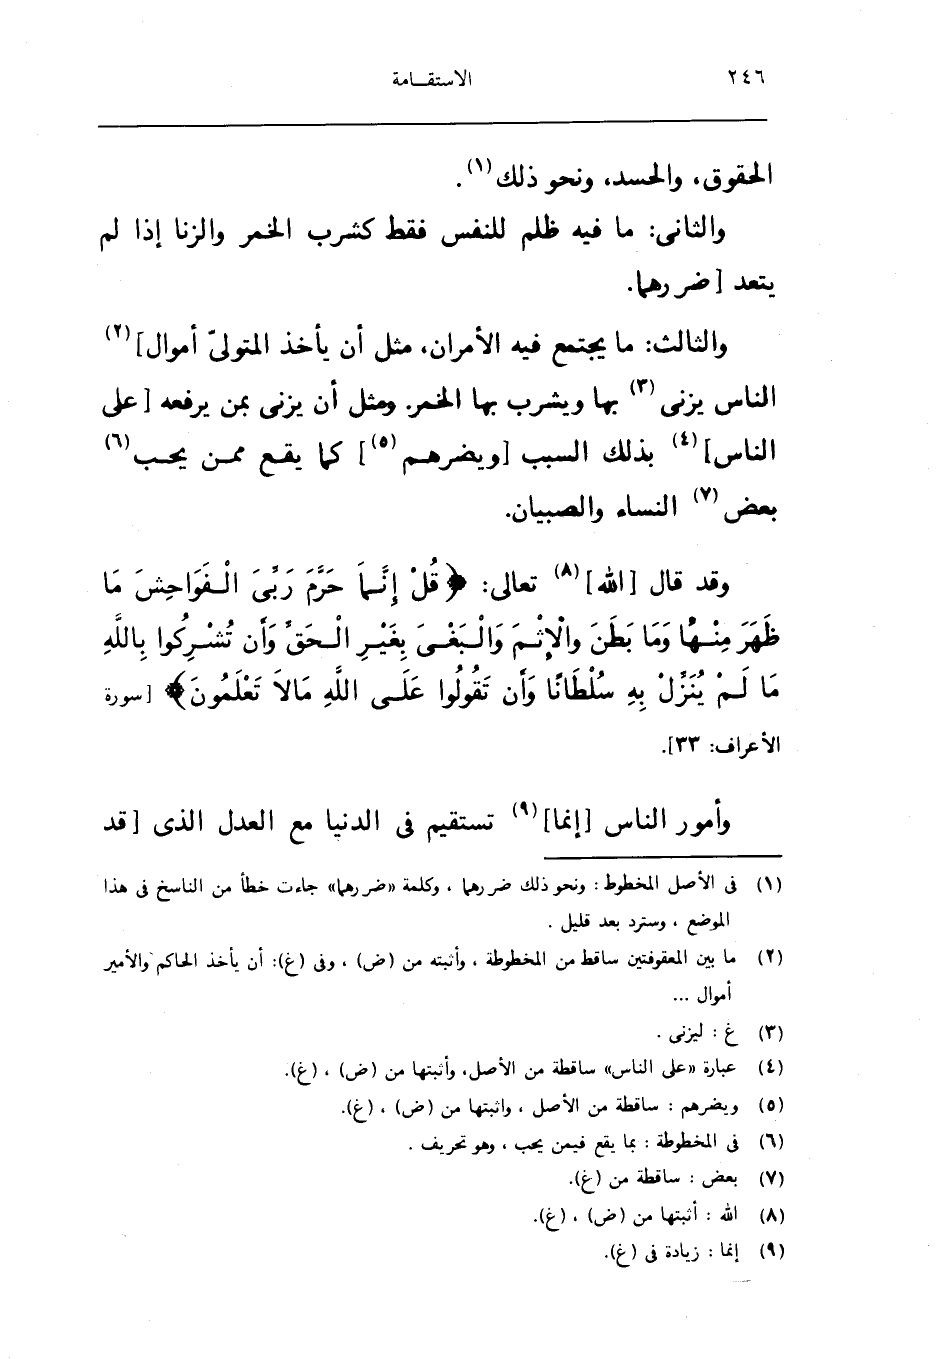 ٢٤٦
الاستقـامة
الحقوق، والحسد، ونحو ذلك(١).
والثانى: ما فيه ظلم للنفس فقط كشرب الخمر والزنا إذا لم
يتعد [ضررهما.
والثالث: ما يجتمع فيه الأمران، مثل أن يأخذ المتولىّ أموال](٢)
الناس يزنى(٣) بها ويشرب بها الخمر. ومثل أن يزنى بمن يرفعه [على
الناس](٤) بذلك السبب [ويضرهـم(٥)] كما يقـع ممـن يحـب(٦)
بعض(٧) النساء والصبيان.
وقد قال [الله](٨) تعالى: ﴿قُلْ إِنَّـمَا حَرَّمَ رَبِّىَ الْـفَوَاحِشَ مَا
ظَهَرَ مِنْـهَا وَمَا بَطَنَ والْإِثْـمَ وَالْـبَغْـىَ بِغَيْـرِ الْـحَقِّ وَأَن تُشْـرِكُوا بِاللَّهِ
مَا لَـمْ يُنَزِّلْ بِهِ سُلْطَانًا وَأَن تَقُولُوا عَلَـى اللَّهِ مَالاَ تَعْلَمُونَ﴾ [سورة
الأعراف: ٣٣].
وأمور الناس [إنما](٩) تستقيم فى الدنيا مع العدل الذى [قد
(١) فى الأصل المخطوط: ونحو ذلك ضررهما، وكلمة «ضررهما» جاءت خطأ من الناسخ فى هذا
الموضع، وسترد بعد قليل.
(٢) ما بين المعقوفتين ساقط من المخطوطة، وأثبته من (ض)، وفى (غ): أن يأخذ الحاكم والأمير
أموال ...
(٣) غ: ليزنى.
(٤) عبارة «على الناس» ساقطة من الأصل، وأثبتها من (ض)، (غ).
(٥) ويضرهم: ساقطة من الأصل، واثبتها من (ض)، (غ).
(٦) فى المخطوطة: بما يقع فيمن يحب، وهو تحريف.
(٧) بعض: ساقطة من (غ).
(٨) الله: أثبتها من (ض)، (غ).
(٩) إنما: زيادة فى (غ).